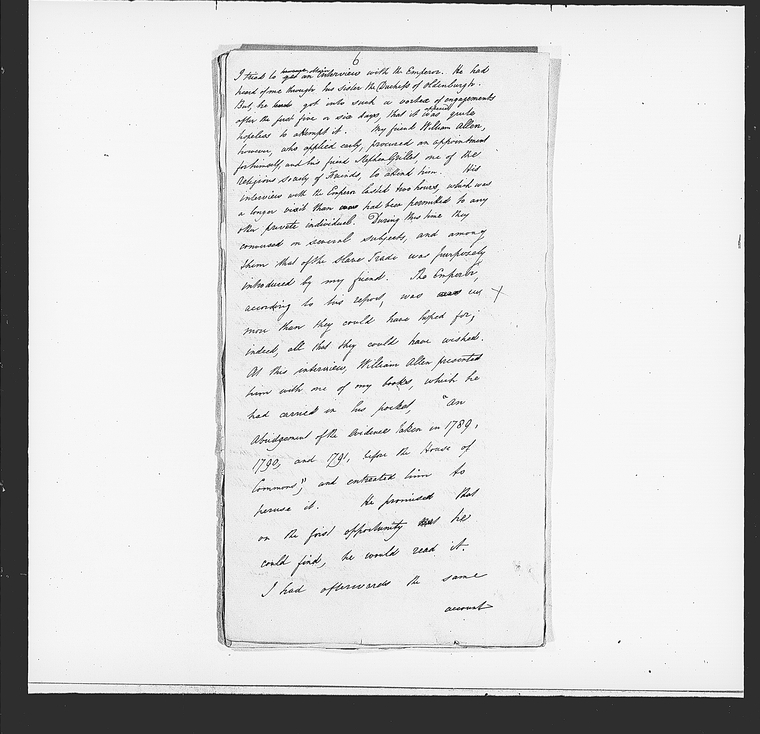 6
I tried to get an interview with the Emperor. He had
heard of me through his sister the Duchess of Oldenburgh.
But, he had got into such a vortex of engagements
after the first five or six days, that it was quite
hopeless to attempt it. My friend William Allen,
however, who applied early, procured an appointment
for himself, and his friend Stephen Grillet, one of the
religious society of Friends, to attend him. His
interview with the Emperor lasted two hours, which was
a longer visit than had been permitted to any
other private individual. During this time they
conversed on several subjects, and among
them that of the Slave Trade was purposely
introduced by my friend. The Emperor,
according to his report, was
more than they could have hoped for;
indeed, all that they could have wished.
At this interview, William Allen presented
him with one of my books, which he
had carried in his pocket, "An
Abridgement of the Evidence taken in 1789,
1790, and 1791, before the House of
Commons", and entreated him to
peruse it. He promised that
on the first opportunity that he
could find, he would read it.
I had afterwards the same
account